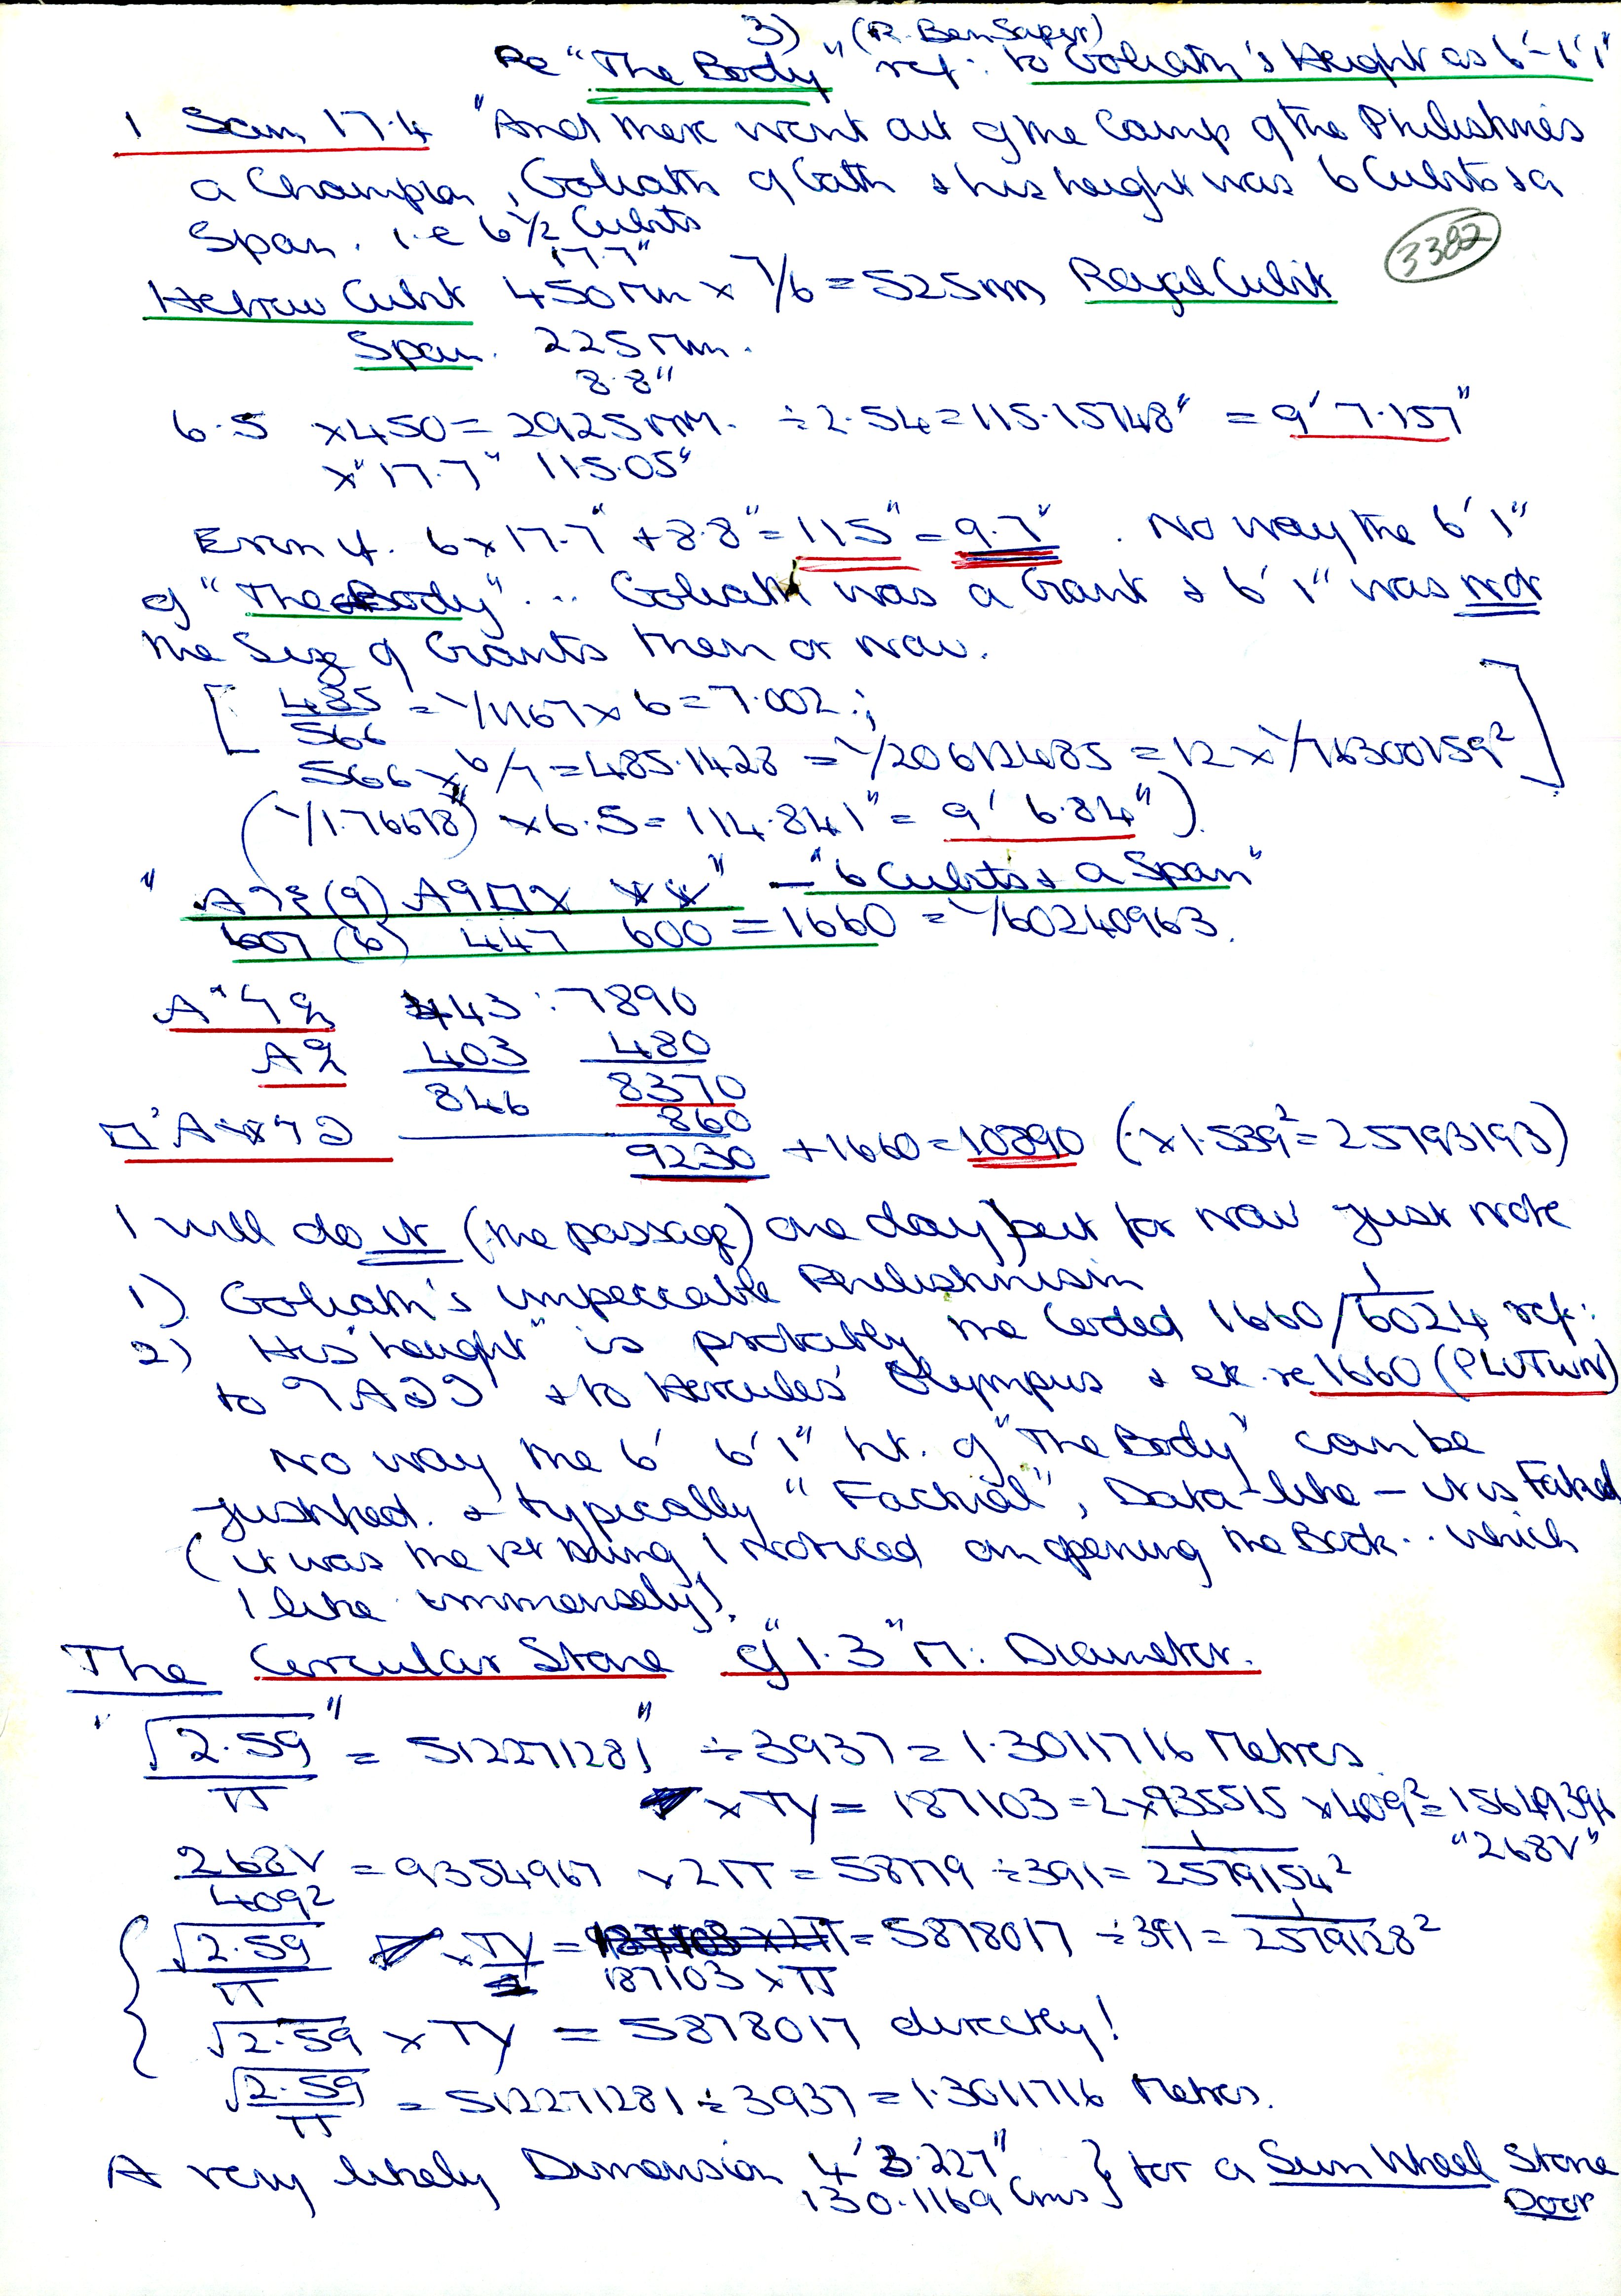 3) (R. Ben Sapir)
Re "The Body" ref: to Goliath's Height as 6'-6'1"
1 Sam 17.4 "And there went out of the Camp of the Philistines
a Champion, Goliath of Gath & his height was 6 Cubits & a
Span. i.e 6 1/2 Cubits
3382
17.7"
Hebrew Cubit 450mm × 7/6 = 525mm Royal Cubit
Span. 225mm.
8.8"
6.5 ×450 = 2925mm. ÷2.54 = 115.15748" = 9' 7.157"
×"17.7" 115.05"
Even if. 6×17.7" + 8.8" = 115" = 9.7" . No way the 6' 1"
of "The Body" ... Goliath was a Giant & 6' 1" was not
the Size of Giants then or now.
[ 485/566 = 1/1167 × 6 = 7.002 :;
566 × 6/7 = 485.1428 = 1/20612485 = 12 × 1/76300159² ]
(1/1.76678") × 6.5 = 114.841" = 9' 6.84")
" — "6 Cubits & a Span"
607 (6) 447 600 = 1660 = 1/60240963.
443 : 7890
403 480
846 8370
860
9230 + 1660 = 10890 (· × 1.539² = 25793193)
I will do it (the passage) one day) but for now just note
1) Goliath's impeccable Philistinism
2) His "height" is probably the Coded 1660/ 1/6024 ref:
to & to Hercules' Olympus & ex. re 1660 (PLUTWN)
No way the 6' 6'1" ht. of "The Body" can be
justified. & typically "Factual", Data-like — it is Faked
(it was the 1st thing I noticed on opening the Book.. which
I like immensely).
The Circular Stone of "1.3" M: Diameter.
"√2.59/π" = 512271281" ÷ 3937 = 1.3011716 Metres
× TY = 187103 = 2×935515 × 409² = 15649394
"268V"
268V/409² = 9354967 × 2π = 58779 ÷ 391 = 1/2579154²
√2.59/π × TY = 187103 × π = 5878017 ÷ 391 = 1/2579128²
√2.59 × TY = 5878017 directly!
√2.59/π = 512271281 ÷ 3937 = 1.3011716 Metres.
A very likely Dimension 4' 3.227" } for a Sun Wheel Stone
130.1169 Cms Door